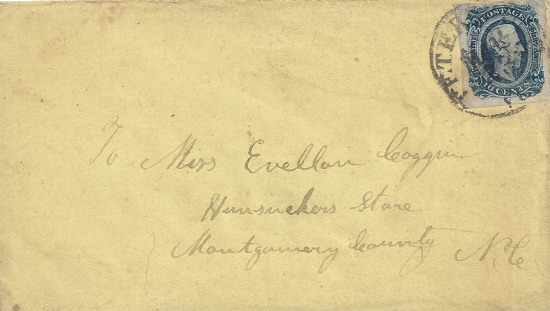 POSTAGE
CENTS
To Miss Evellan Coggin
Hunsuckers Store
Montgomery County N.C